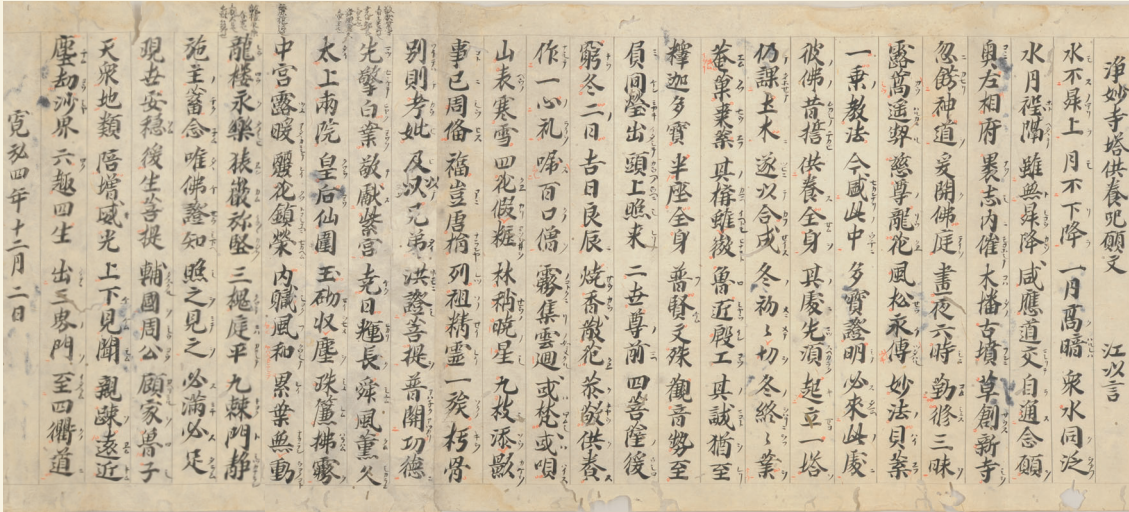 浄妙寺塔供養呪願文 江以言
水不昇上 月不下降 一月高晴 衆水同泛
水月裎隅 雖無昇降 感應道交 自通念願
奥左相府 累志内催 木幡古墳 草創新寺
忽餝神道 爰開佛庭 晝夜六時 勤修三昧
露萬遥契 慈尊龍花 風松永傳 妙法貝葉
一乗教法 今感此中 多寶證明 必来此處
彼佛昔搭 供養全身 其處先須 起立一塔
仍課土木 遂以合成 冬初〻切 冬終〻業
菴菓棗葉 其構雖微 魯匠殷工 其誠猶至
釋迦多寶 半座全身 普賢文殊 觀音勢至
負同瑩出 頭上瞧来 二世尊前 四菩薩後
窮冬二日 吉日良辰 焼香散花 恭敬供養
作一心礼 啒百口僧 霧集雲廻 或梵或唄
山衣寒雪 四花假粧 林梢暁星 九枝添影
事已周俻 福豈唐捐 列祖精霊 一族朽骨
別則考妣 及以兄弟 洪證菩提 普開功徳
先擎白業 敬獻紫宮 尭日輝長 舜風薫久
太上両院 皇后仙闈 玉砌収塵 珠簾拂霧
中宮露暖 櫻花鎖榮 内藏風和 累葉無動
龍楼永樂 猿巌弥堅 三槐庭平 九棘門静
施主蓄念 唯佛證知 照之見之 必満必足
現世安穏 後生菩提 輔國周公 顧家曽子
天衆地類 陪増威光 上下見聞 親疎遠近
塵劫沙界 六趣四生 出三界門 至四衢道
寛弘四年十二月二日